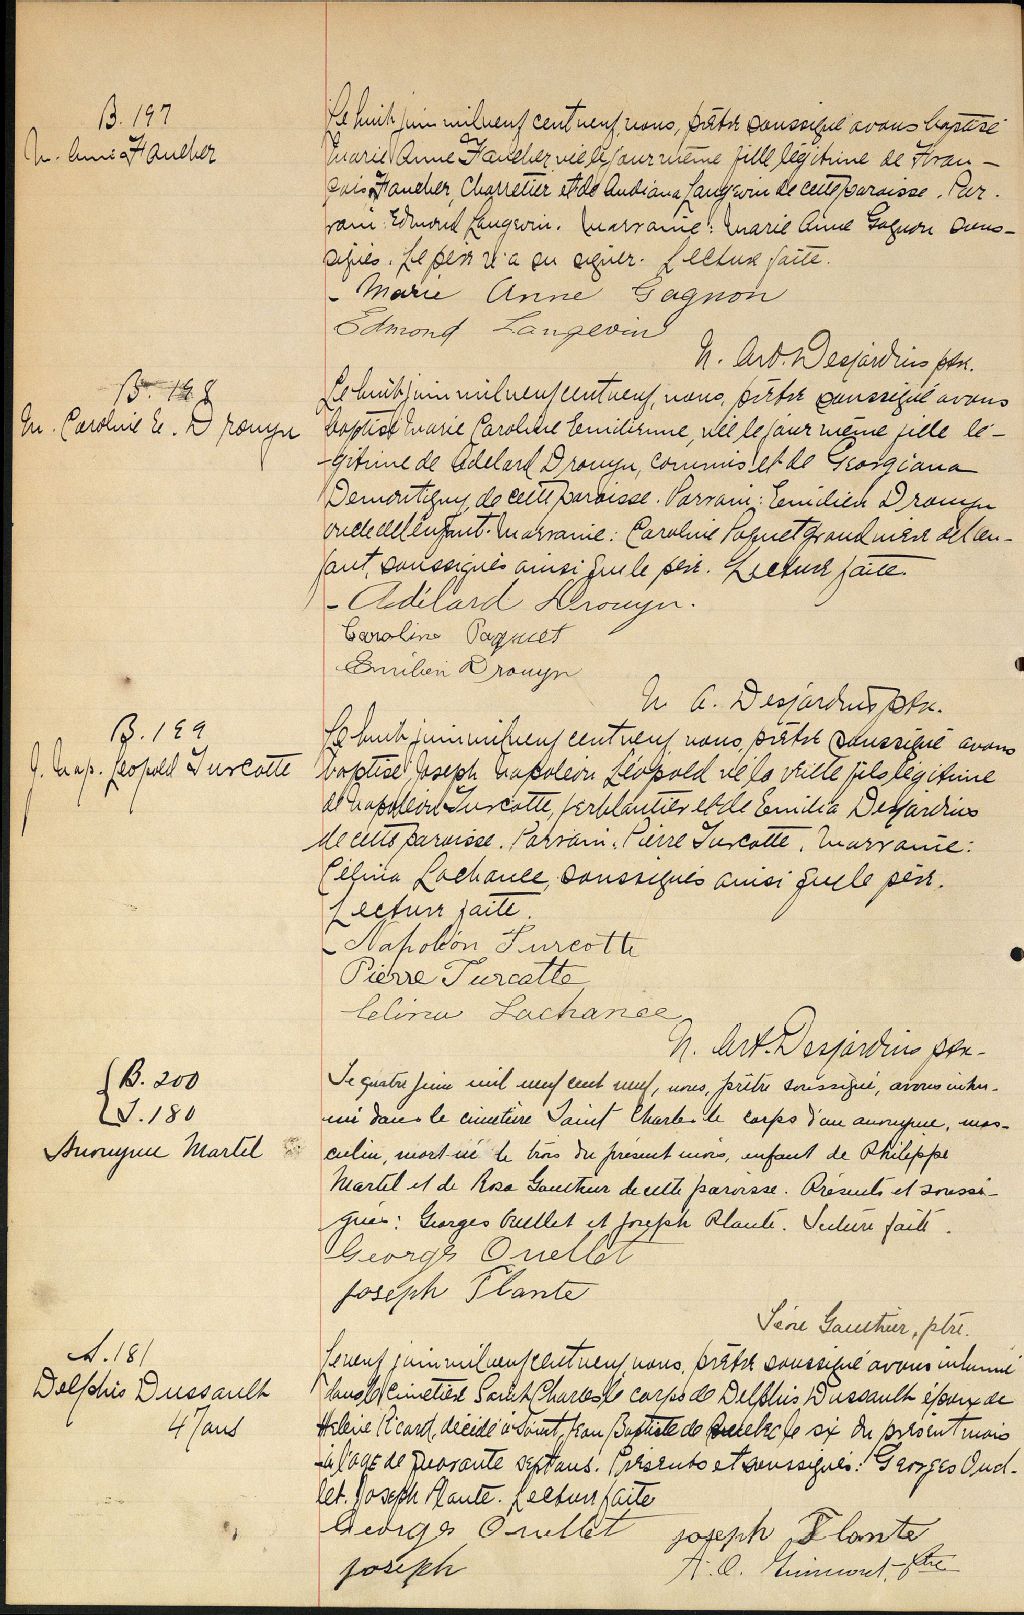 B. 197
M. Anne Faucher
Le huit juin mil neuf cent neuf, nous, prêtre soussigné avons baptisé
Marie Anne Faucher née le jour même fille légitime de Fran-
çois Faucher, Charretier et de Audiana Langevin de cette paroisse. Par-
rain: Edmond Langevin. Marraine: Marie Anne Gagnon sous-
signés. Le père n'a su signer. Lecture faite.
- Marie Anne Gagnon
Edmond Langevin
N. Art. Desjardins ptre.
B. 198
M. Caroline E. Drouyn
Le huit juin mil neuf cent neuf, nous, prêtre soussigné avons
baptisé Marie Caroline Emilienne, née le jour même fille lé-
gitime de Adelard Drouyn, commis et de Georgiana
Demontigny, de cette paroisse. Parrain: Emilien Drouyn
oncle de l'enfant. Marraine: Caroline Paquet grand'mère de l'en-
fant, soussignés ainsi que le père. Lecture faite.
- Adélard Drouyn.
Caroline Paquet
Emilien Drouyn
N. A. Desjardins ptre.
B. 199
J. Nap. Léopold Turcotte
Le huit juin mil neuf cent neuf nous, prêtre soussigné avons
baptisé Joseph Napoléon Léopold né la veille fils légitime
de Napoléon Turcotte, ferblantier et de Emilia Desjardins
de cette paroisse. Parrain: Pierre Turcotte. Marraine:
Célina Lachance, soussignés ainsi que le père.
Lecture faite.
- Napoléon Turcotte
Pierre Turcotte
Célina Lachance
N. Art. Desjardins ptre-
B. 200
S. 180
Anonyme Martel
Le quatre juin mil neuf cent neuf, nous, prêtre soussigné, avons inhu-
mé dans le cimetière Saint Charles le corps d'un anonyme, mas-
culin, mort-né le trois du présent mois, enfant de Philippe
Martel et de Rosa Gauthier de cette paroisse. Présents et soussi-
gnés: Georges Ouellet et Joseph Plante. Lecture faite.
Georges Ouellet
Joseph Plante
Gauthier, ptre.
S. 181
Delphis Dussault
47 ans
Le neuf juin mil neuf cent neuf nous, prêtre soussigné avons inhumé
dans le cimetière Saint Charles le corps de Delphis Dussault époux de
Hélène Picard, décédé à Saint Jean Baptiste de Québec le six du présent mois
à l'age de quarante sept ans. Présents et soussignés: Georges Ouel-
let. Joseph Plante. Lecture faite
Georges Ouellet Joseph Plante
Joseph
A. O. Guimont, ptre